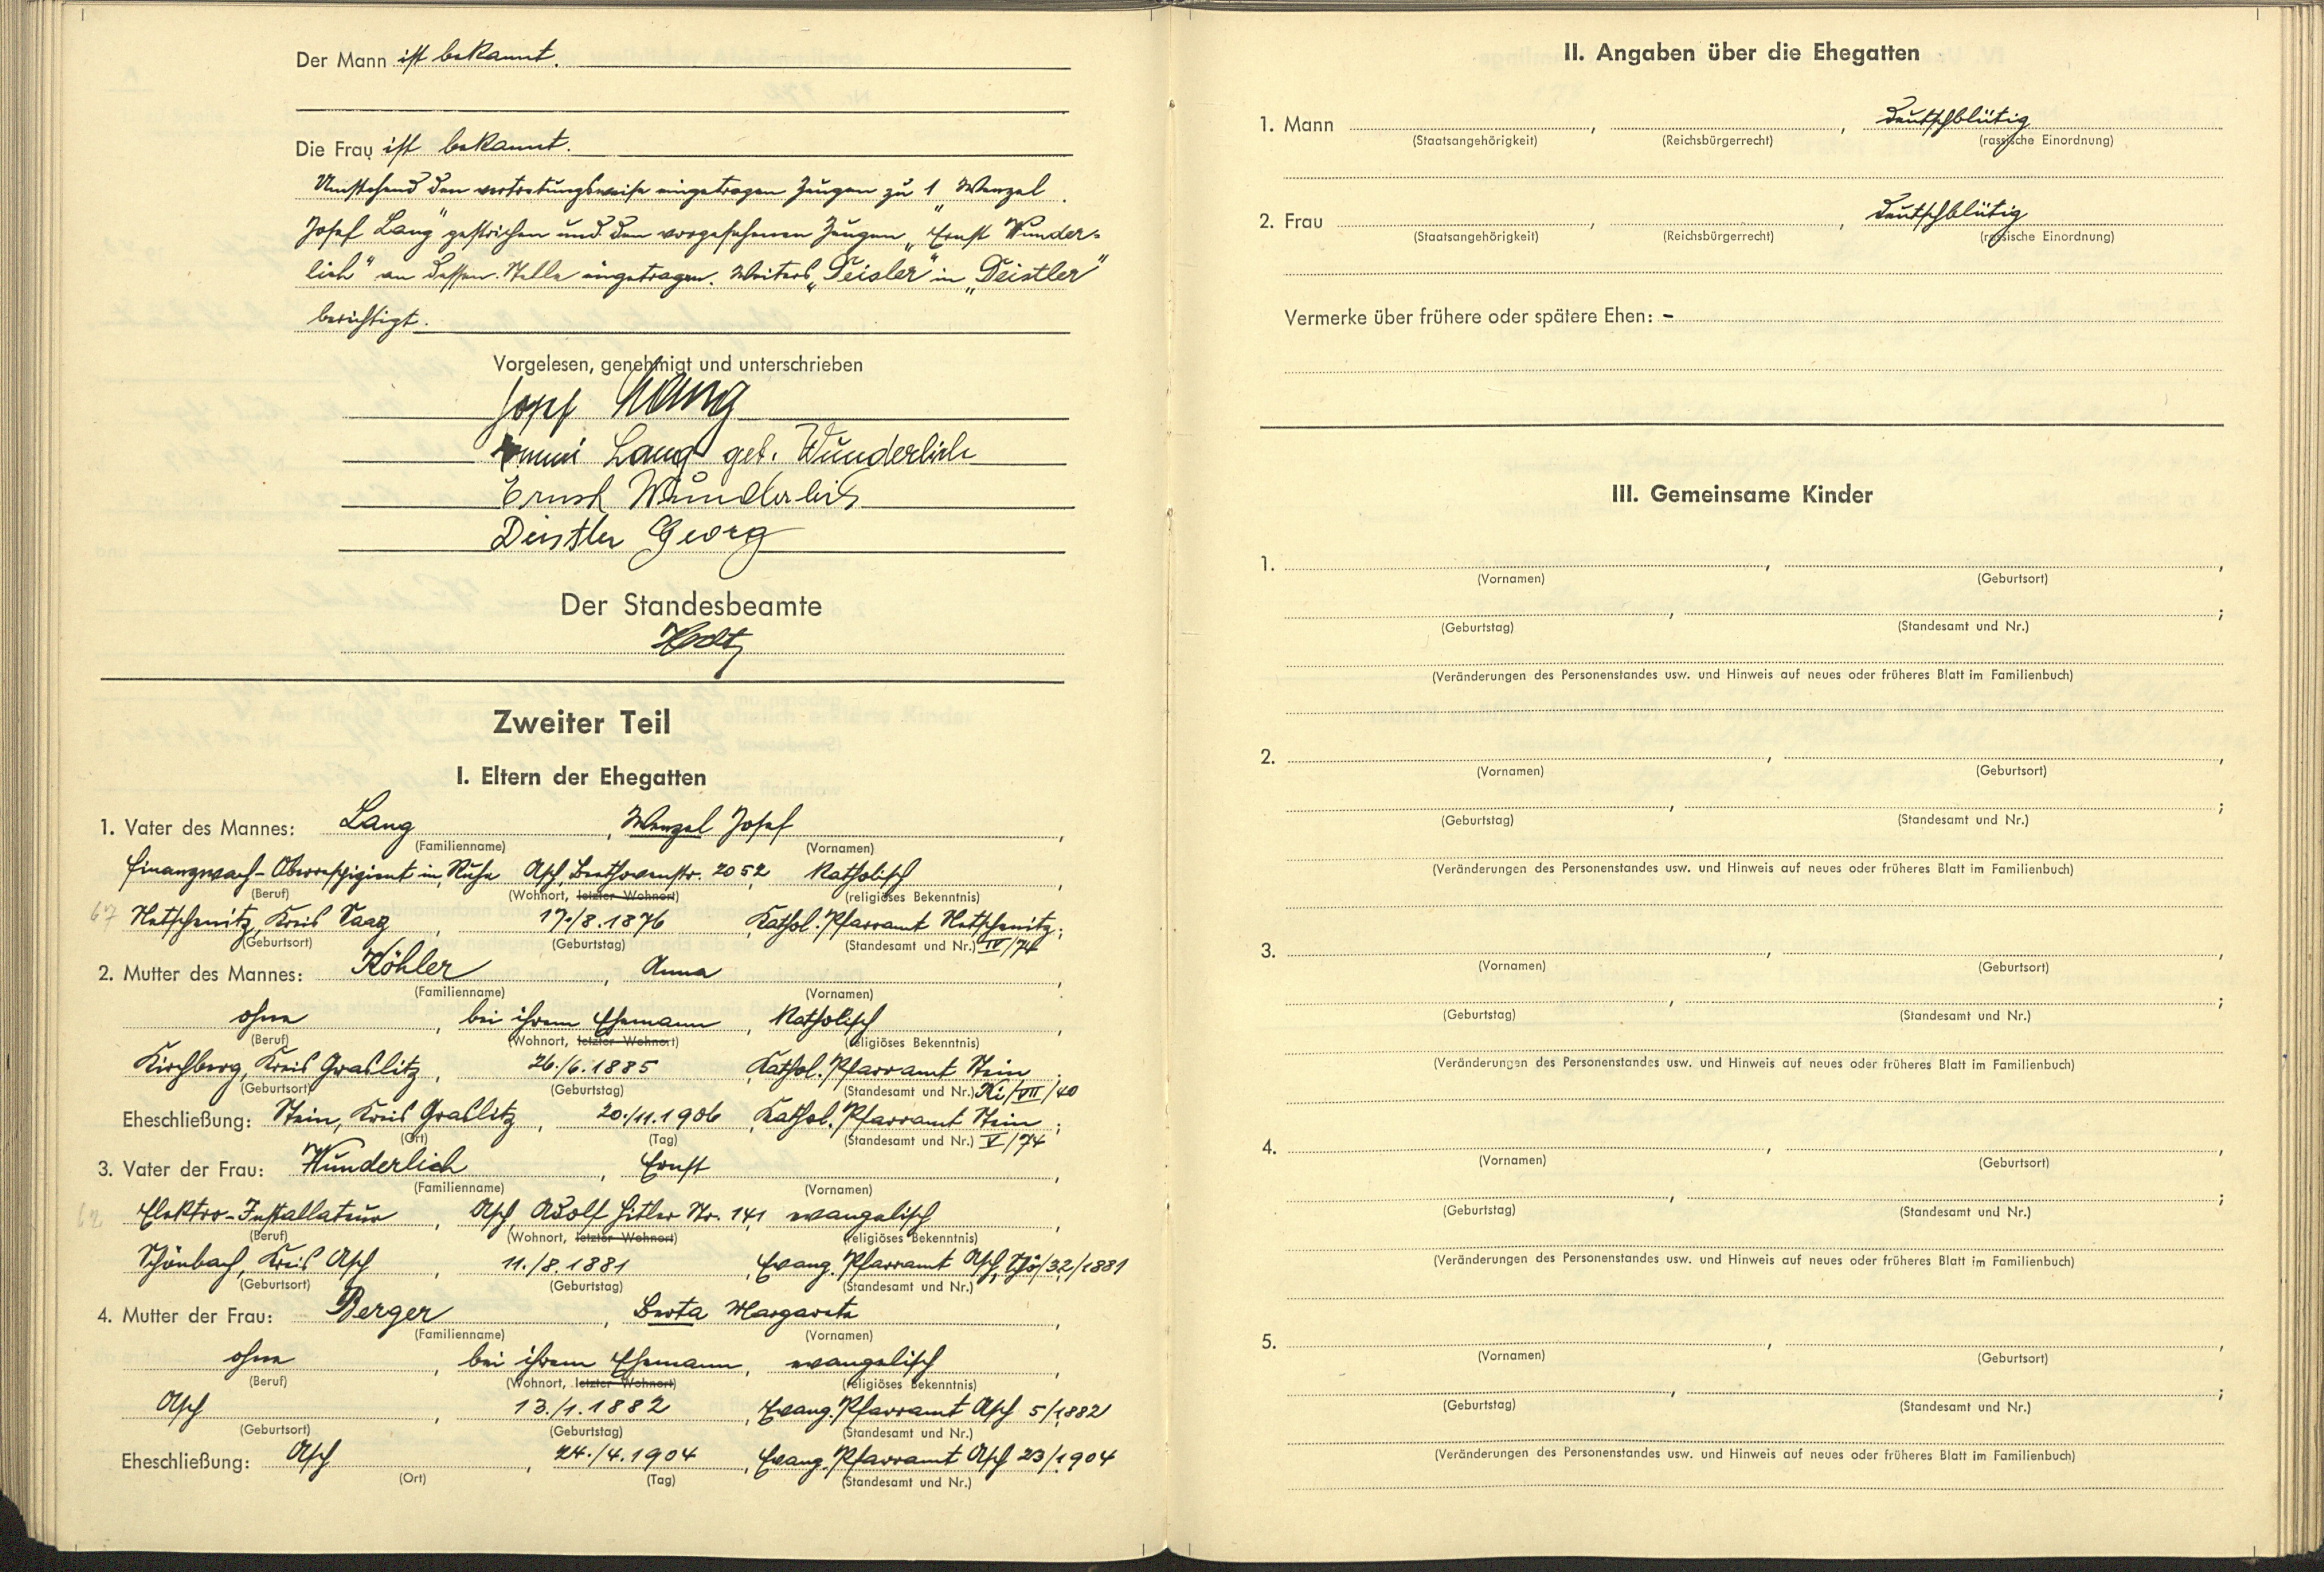 Der Mann ist bekannt.
Die Frau ist bekannt.
Umstehend den vertretungsweise eingetragen Zeugen zu 1 „Wenzel
Josef Lang" gestrichen und den vorgesehenen Zeugen „Ernst Wunder-
lich" an dessen Stelle eingetragen. Weiters „Deisler" in „Deistler"
berichtigt.
Vorgelesen, genehmigt und unterschrieben
Josef Lang
Lang geb. Wunderlich
Ernst Wunderlich
Deistler Georg
Der Standesbeamte
Zweiter Teil
I. Eltern der Ehegatten
1. Vater des Mannes: Lang, Wenzel Josef,
(Familienname) (Vornamen)
Finanzwach-Oberrespizient in Ruhe, Asch, Beethovenstr. 2052, katholisch,
(Beruf) (Wohnort, letzter Wohnort) (religiöses Bekenntnis)
67 Netschenitz, Kreis Saaz, 17./8.1876, Kathol. Pfarramt Netschenitz;
(Geburtsort) (Geburtstag) (Standesamt und Nr.) IV/74
2. Mutter des Mannes: Köhler, Anna,
(Familienname) (Vornamen)
ohne, bei ihrem Ehemann, katholisch,
(Beruf) (Wohnort, letzter Wohnort) (religiöses Bekenntnis)
Kirchberg, Kreis Graslitz, 26./6.1885, Kathol. Pfarramt Stein;
(Geburtsort) (Geburtstag) (Standesamt und Nr.) Ki/VII/40
Eheschließung: Stein, Kreis Graslitz, 20./11.1906, Kathol. Pfarramt Stein;
(Ort) (Tag) (Standesamt und Nr.) V/74
3. Vater der Frau: Wunderlich, Ernst,
(Familienname) (Vornamen)
62 Elektro-Installateur, Asch, Adolf Hitler Str. 141, evangelisch,
(Beruf) (Wohnort, letzter Wohnort) (religiöses Bekenntnis)
Schönbach, Kreis Asch, 11./8.1881, Evang. Pfarramt Asch, Schö/32/1881
(Geburtsort) (Geburtstag) (Standesamt und Nr.)
4. Mutter der Frau: Berger, Berta Margareta,
(Familienname) (Vornamen)
ohne, bei ihrem Ehemann, evangelisch,
(Beruf) (Wohnort, letzter Wohnort) (religiöses Bekenntnis)
Asch, 13./1.1882, Evang. Pfarramt Asch 5/1882
(Geburtsort) (Geburtstag) (Standesamt und Nr.)
Eheschließung: Asch, 24./4.1904, Evang. Pfarramt Asch 23/1904
(Ort) (Tag) (Standesamt und Nr.)
II. Angaben über die Ehegatten
1. Mann , , deutschblütig
(Staatsangehörigkeit) (Reichsbürgerrecht) (rassische Einordnung)
2. Frau , , deutschblütig
(Staatsangehörigkeit) (Reichsbürgerrecht) (rassische Einordnung)
Vermerke über frühere oder spätere Ehen: -
III. Gemeinsame Kinder
1. , ,
(Vornamen) (Geburtsort)
, ;
(Geburtstag) (Standesamt und Nr.)
(Veränderungen des Personenstandes usw. und Hinweis auf neues oder früheres Blatt im Familienbuch)
2. , ,
(Vornamen) (Geburtsort)
, ;
(Geburtstag) (Standesamt und Nr.)
(Veränderungen des Personenstandes usw. und Hinweis auf neues oder früheres Blatt im Familienbuch)
3. , ,
(Vornamen) (Geburtsort)
, ;
(Geburtstag) (Standesamt und Nr.)
(Veränderungen des Personenstandes usw. und Hinweis auf neues oder früheres Blatt im Familienbuch)
4. , ,
(Vornamen) (Geburtsort)
, ;
(Geburtstag) (Standesamt und Nr.)
(Veränderungen des Personenstandes usw. und Hinweis auf neues oder früheres Blatt im Familienbuch)
5. , ,
(Vornamen) (Geburtsort)
, ;
(Geburtstag) (Standesamt und Nr.)
(Veränderungen des Personenstandes usw. und Hinweis auf neues oder früheres Blatt im Familienbuch)